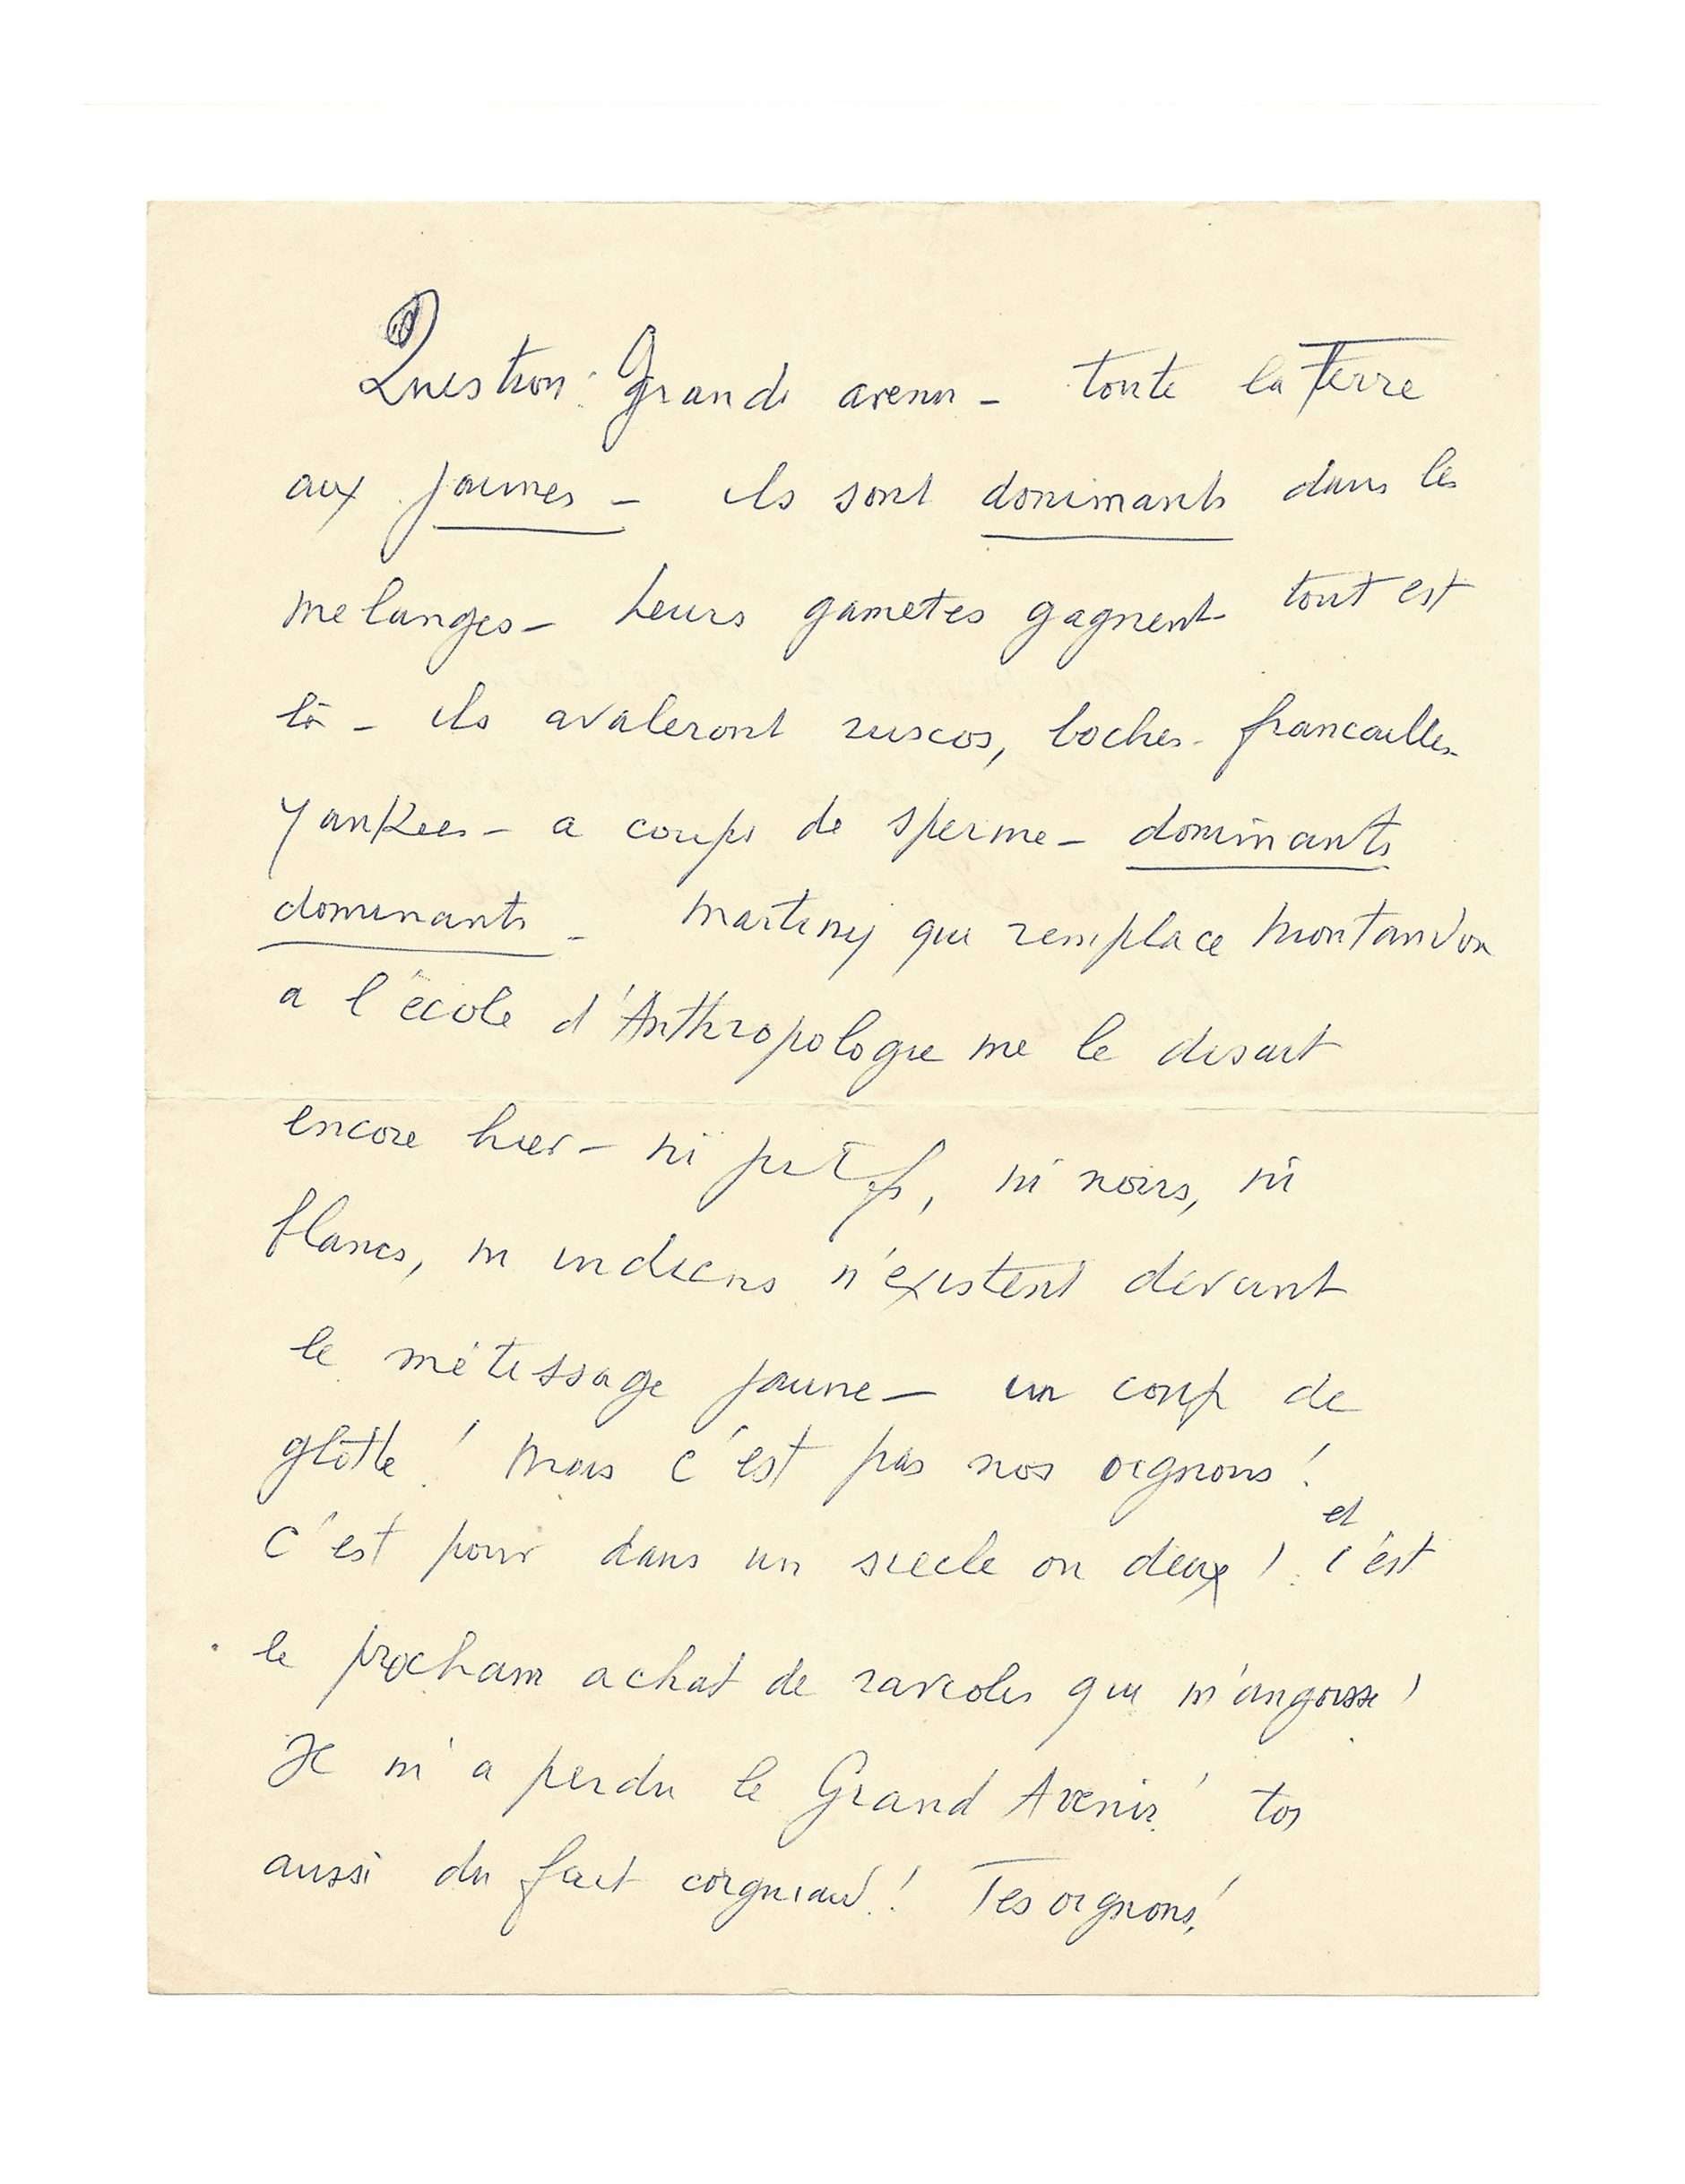 Question Grand avenir - toute la Terre
aux jaunes - ils sont dominants dans les
melanges - Leurs gametes gagnent tout est
là - ils avaleront ruscos, boches - francailles
Yankees - a coups de sperme - dominants
dominants - Martiny qui remplace Montandon
a l'école d'Anthropologie me le disait
encore hier - ni juifs, ni noirs, ni
blancs, ni indiens n'existent devant
le métissage jaune - un coup de
glotte ! Mais c'est pas nos oignons !
C'est pour dans un siecle ou deux ! et c'est
le prochain achat de ravioles qui m'angoisse !
Je m'a perdu le Grand Avenir ! toi
aussi du fait corgniaud ! Tes oignons !